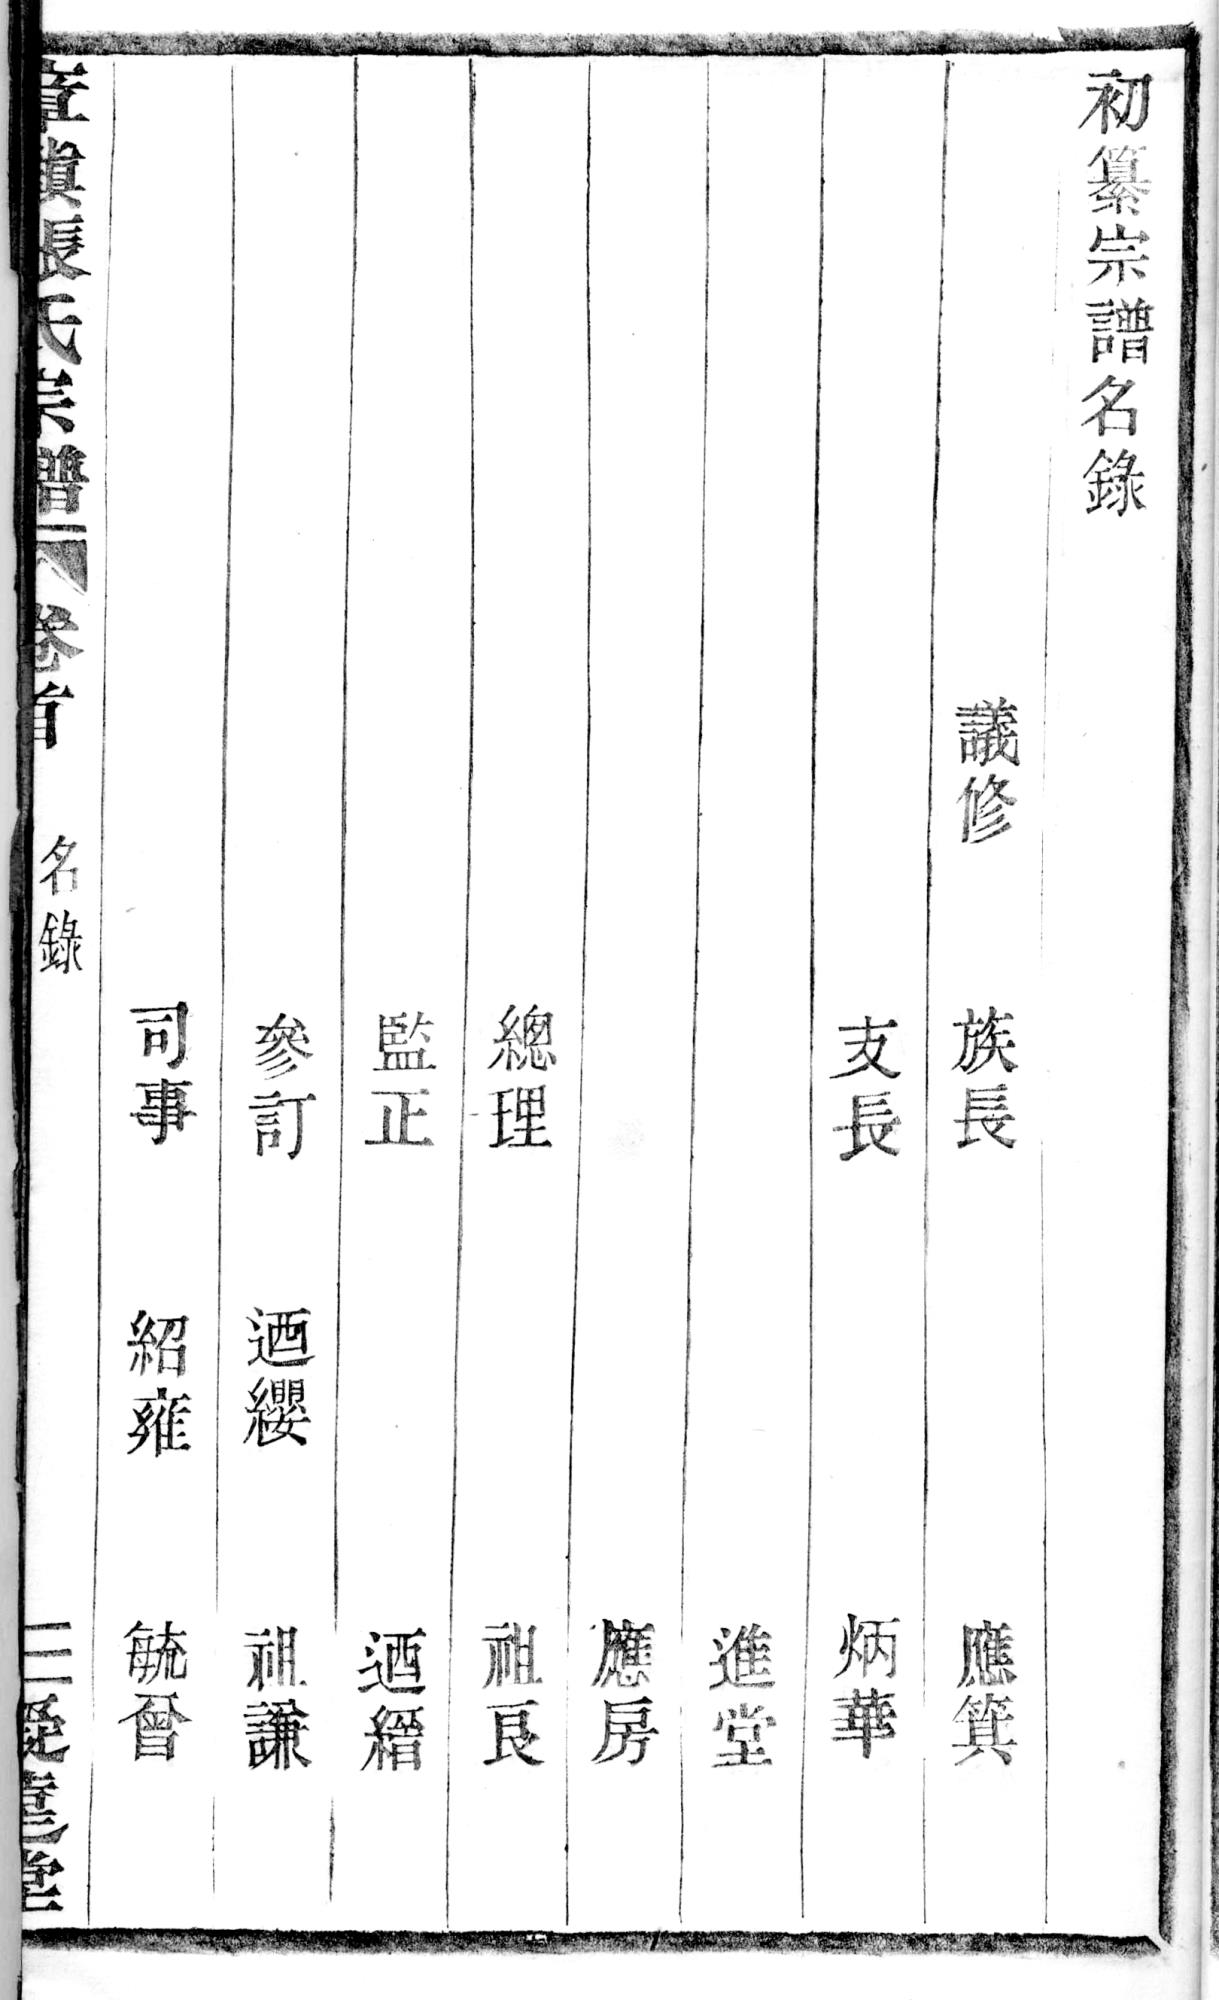 初纂宗譜名錄
議修 族長 應箕
支長 炳華
進堂
應房
總理 祖良
監正 迺縉
參訂 迺纓 祖謙
司事 紹雍 毓晉
章鎮張氏宗譜 卷首 名錄 二 愛蓮堂